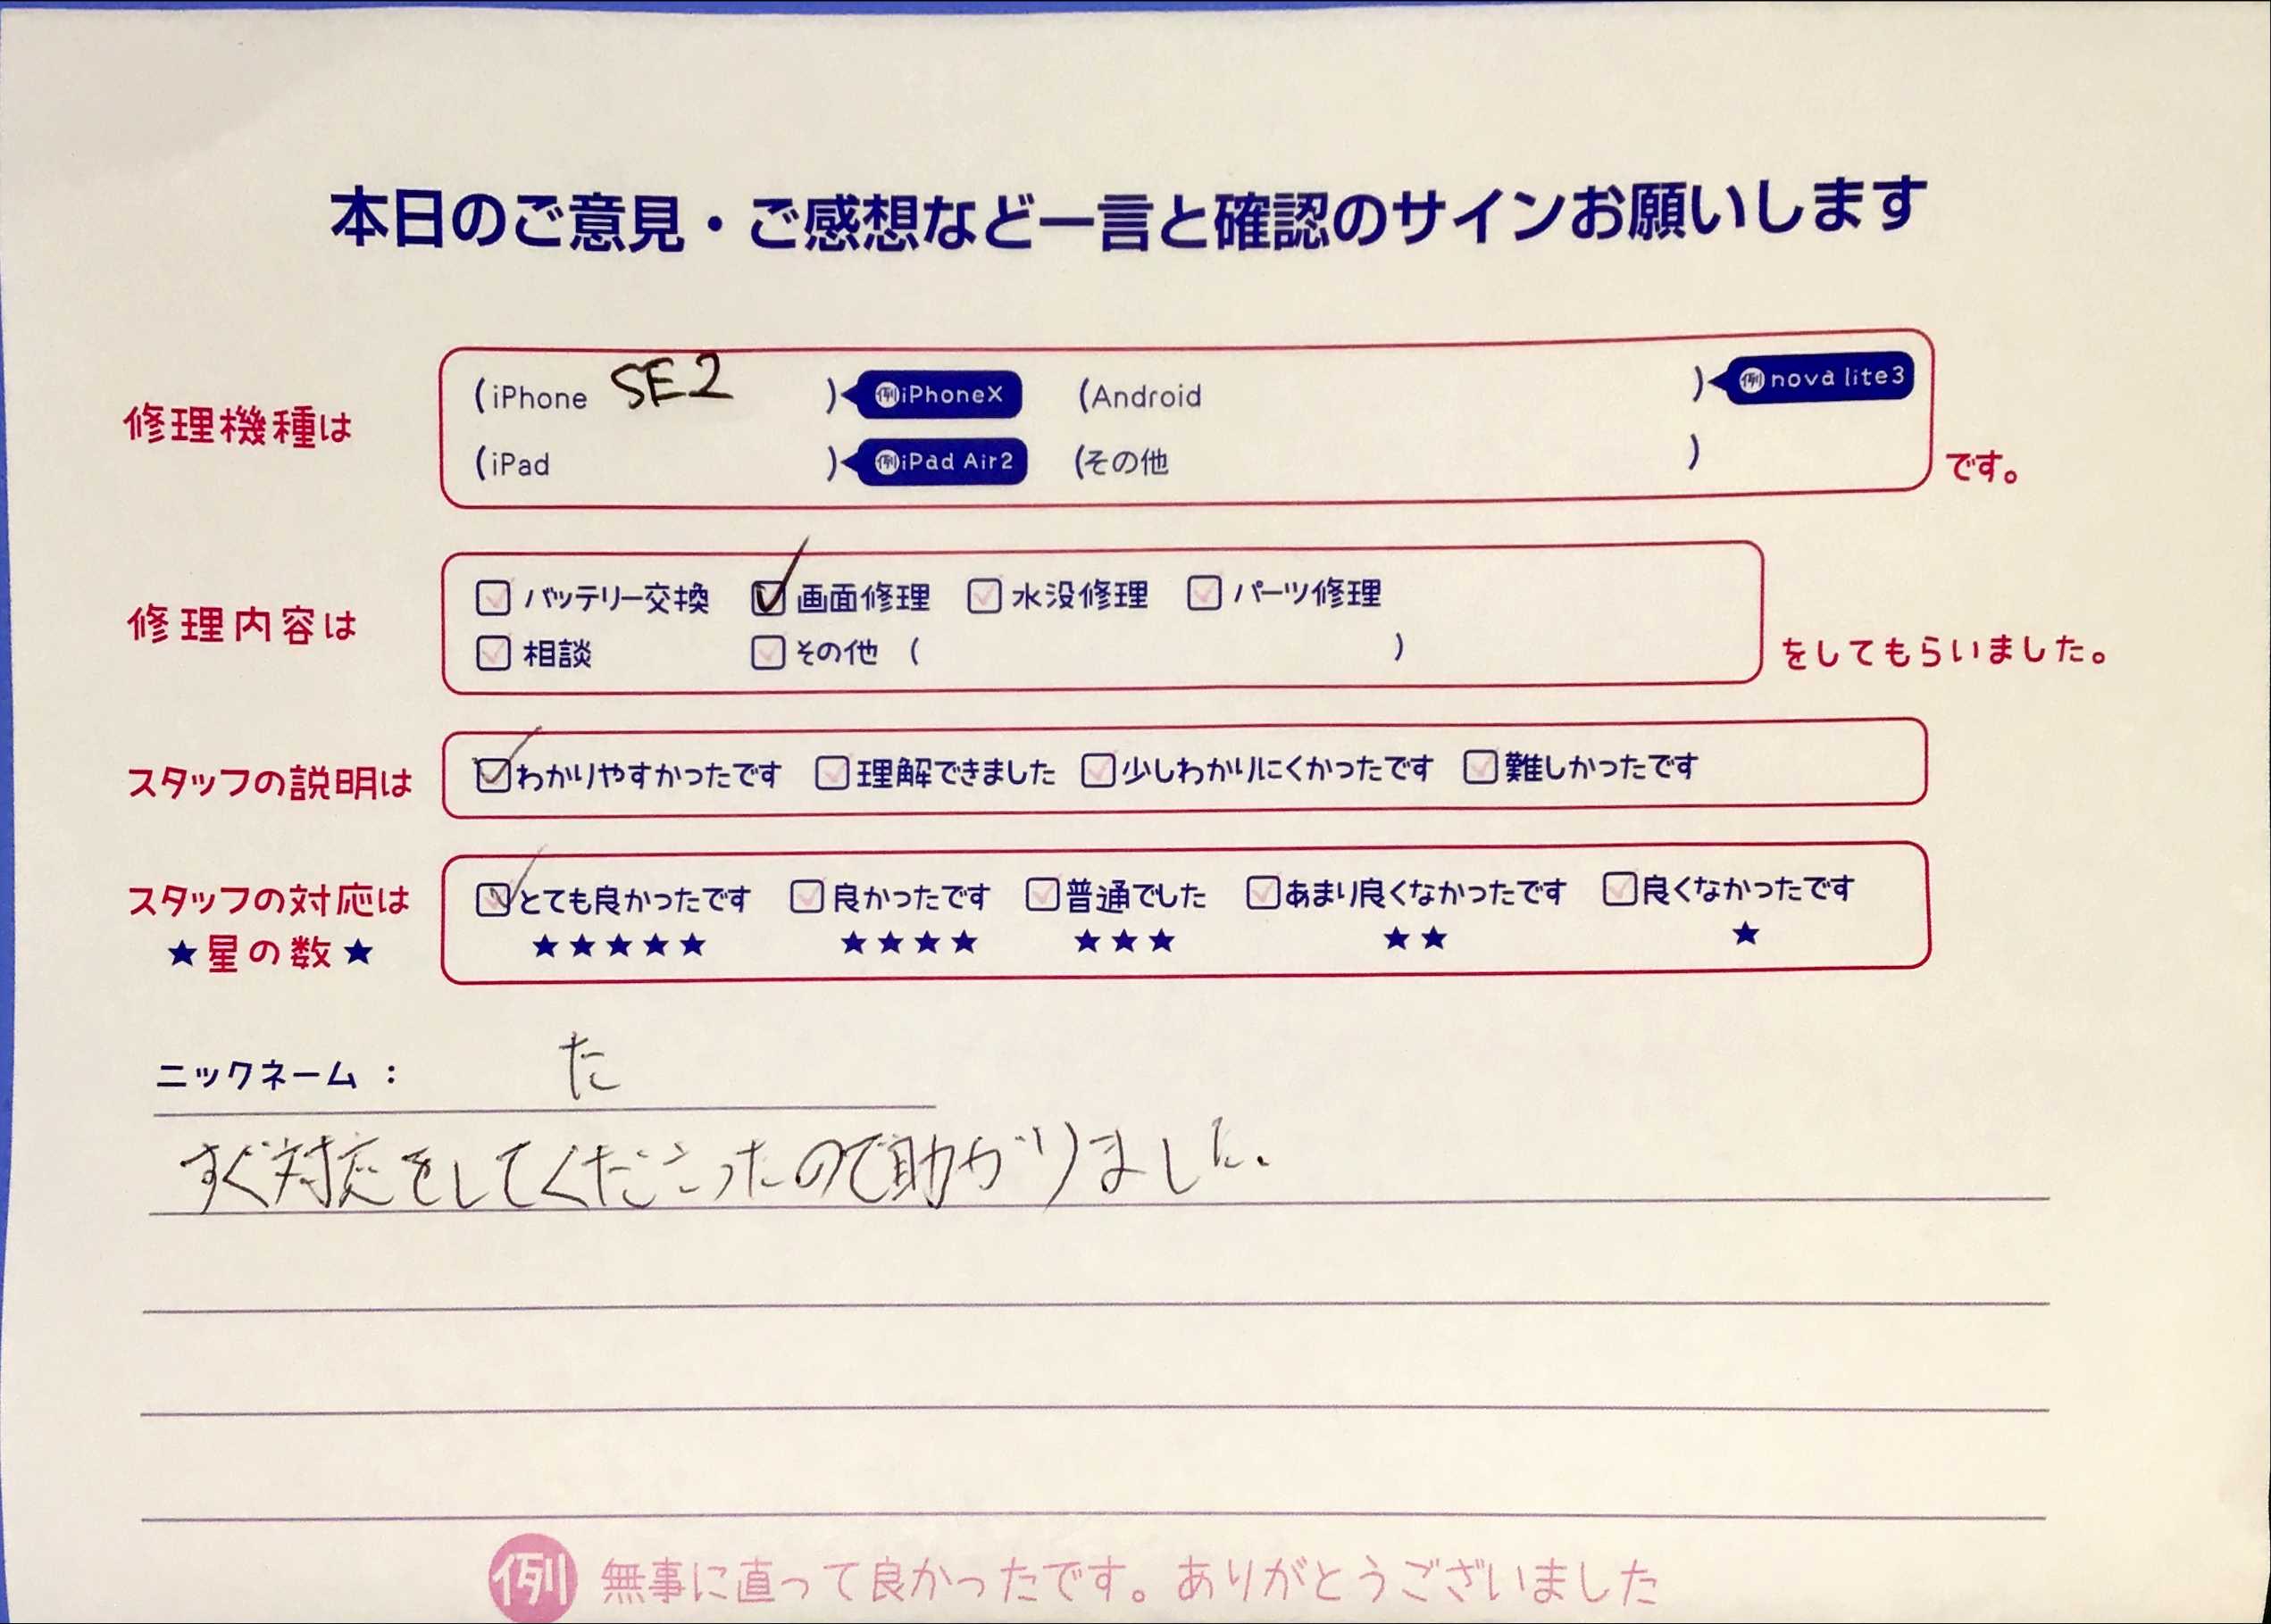 本日のご意見・ご感想など一言と確認のサインお願いします
修理機種は
(iPhone SE2 ) 例iPhoneX (Android ) 例nova lite3
(iPad ) 例iPad Air2 (その他 )
です。
修理内容は
バッテリー交換 画面修理 水没修理 パーツ修理
相談 その他 ( )
をしてもらいました。
スタッフの説明は
わかりやすかったです 理解できました 少しわかりにくかったです 難しかったです
スタッフの対応は
★星の数★
とても良かったです 良かったです 普通でした あまり良くなかったです 良くなかったです
★★★★★ ★★★★ ★★★ ★★ ★
ニックネーム： た
すぐ対応をしてくださったので助かりました.
例 無事に直って良かったです。ありがとうございました